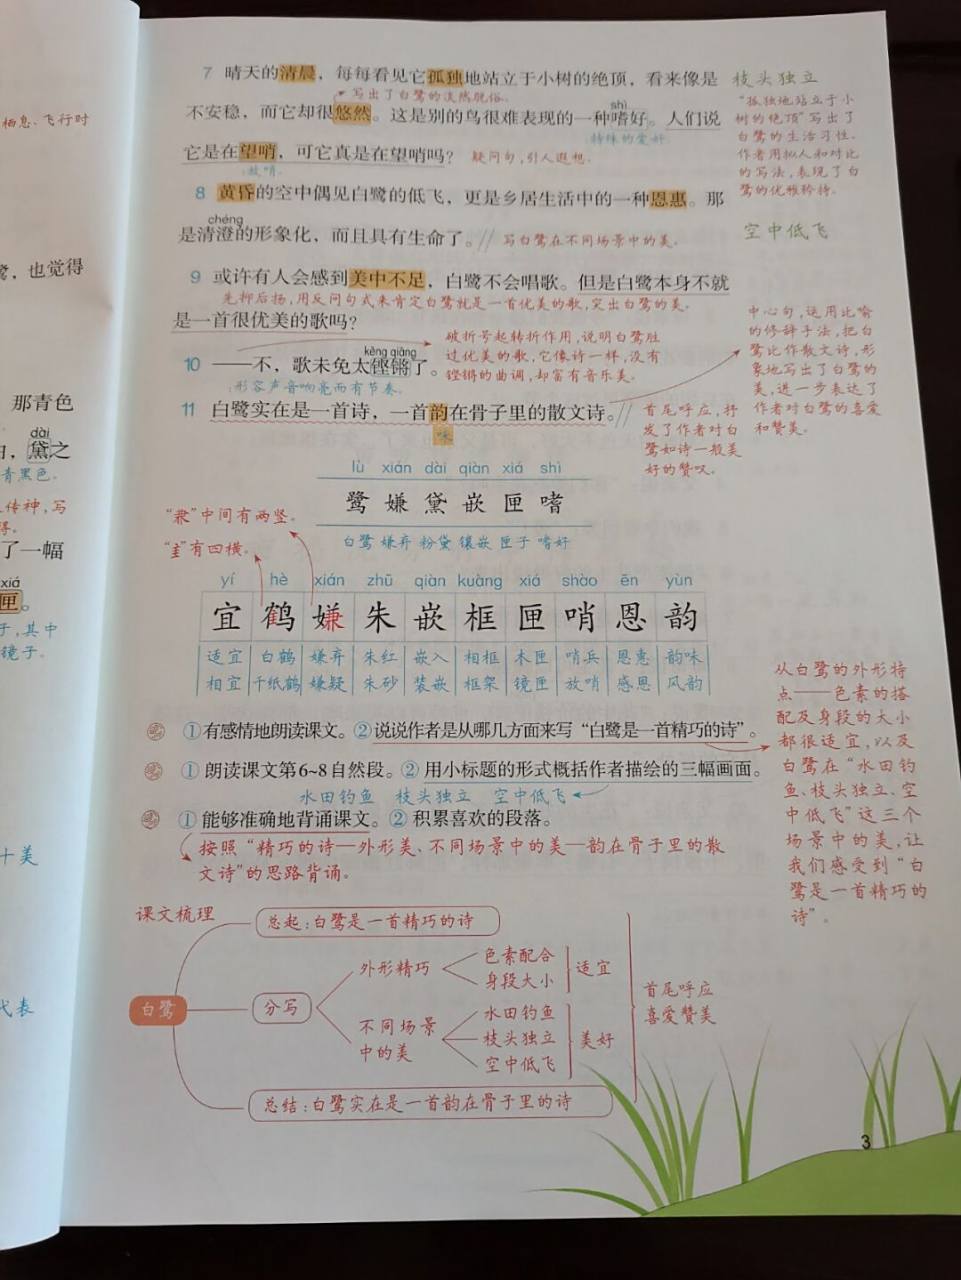 栖息、飞行时
鹭，也觉得
那青色
dài
黛之
青黑色。
传神,写
得。
了一幅
xiá
匣。
子,其中
镜子。
十美
代表
7 晴天的清晨，每每看见它孤独地站立于小树的绝顶，看来像是
写出了白鹭的淡然脱俗。
shì
不安稳，而它却很悠然。这是别的鸟很难表现的一种嗜好。人们说
特殊的爱好
它是在望哨，可它真是在望哨吗？ 疑问句,引人遐想。
放哨。
8 黄昏的空中偶见白鹭的低飞，更是乡居生活中的一种恩惠。那
chéng
是清澄的形象化，而且具有生命了。// 写白鹭在不同场景中的美。
9 或许有人会感到美中不足，白鹭不会唱歌。但是白鹭本身不就
先抑后扬,用反问句式来肯定白鹭就是一首优美的歌,突出白鹭的美。
是一首很优美的歌吗？
kēng qiāng
10 ——不，歌未免太铿锵了。
形容声音响亮而有节奏。
破折号起转折作用,说明白鹭胜
过优美的歌,它像诗一样,没有
铿锵的曲调,却富有音乐美。
11 白鹭实在是一首诗，一首韵在骨子里的散文诗。//
味
首尾呼应,抒
发了作者对白
鹭如诗一般美
好的赞叹。
枝头独立
“孤独地站立于小
树的绝顶”写出了
白鹭的生活习性。
作者用拟人和对比
的写法,表现了白
鹭的优雅矜持。
空中低飞
中心句,运用比喻
的修辞手法,把白
鹭比作散文诗,形
象地写出了白鹭的
美,进一步表达了
作者对白鹭的喜爱
和赞美。
lù xián dài qiàn xiá shì
鹭 嫌 黛 嵌 匣 嗜
白鹭 嫌弃 粉黛 镶嵌 匣子 嗜好
“兼”中间有两竖。
有四横。
yí hè xián zhū qiàn kuàng xiá shào ēn yùn
宜 鹤 嫌 朱 嵌 框 匣 哨 恩 韵
适宜 白鹤 嫌弃 朱红 嵌入 相框 木匣 哨兵 恩惠 韵味
相宜 千纸鹤 嫌疑 朱砂 装嵌 框架 镜匣 放哨 感恩 风韵
①有感情地朗读课文。②说说作者是从哪几方面来写“白鹭是一首精巧的诗”。
① 朗读课文第6~8自然段。② 用小标题的形式概括作者描绘的三幅画面。
水田钓鱼 枝头独立 空中低飞
① 能够准确地背诵课文。② 积累喜欢的段落。
按照“精巧的诗—外形美、不同场景中的美—韵在骨子里的散
文诗”的思路背诵。
从白鹭的外形特
点——色素的搭
配及身段的大小
都很适宜,以及
白鹭在“水田钓
鱼、枝头独立、空
中低飞”这三个
场景中的美,让
我们感受到“白
鹭是一首精巧的
诗”。
课文梳理
总起:白鹭是一首精巧的诗
白鹭
分写
外形精巧
色素配合
身段大小
适宜
不同场景
中的美
水田钓鱼
枝头独立
空中低飞
美好
首尾呼应
喜爱赞美
总结:白鹭实在是一首韵在骨子里的诗
3